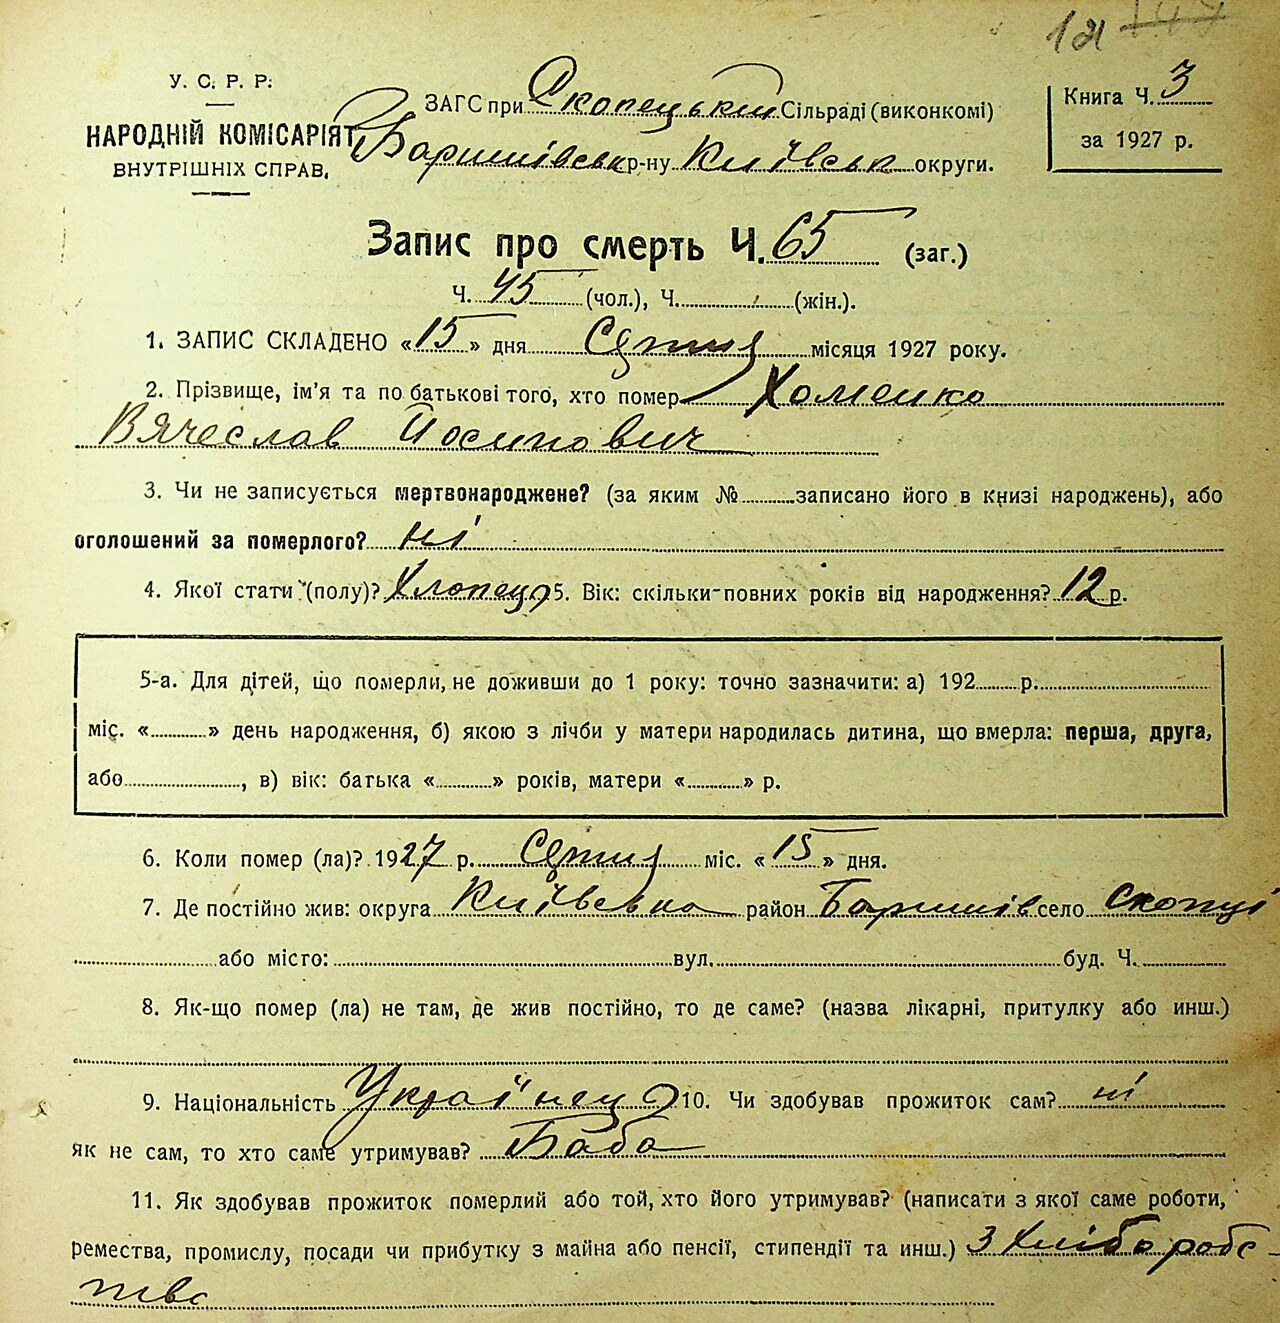 121
У. С. Р. Р.
НАРОДНІЙ КОМІСАРІЯТ
ВНУТРІШНІХ СПРАВ.
ЗАГС при Скопецькій Сільраді (виконкомі)
Баришівськ р-ну Київськ округи.
Книга Ч. 3
за 1927 р.
Запис про смерть Ч. 65 (заг.)
Ч. 45 (чол.), Ч. (жін.).
1. ЗАПИС СКЛАДЕНО «15» дня місяця 1927 року.
2. Прізвище, ім'я та по батькові того, хто помер Хоменко
Вячеслав Йосипович
3. Чи не записується мертвонароджене? (за яким № записано його в книзі народжень), або
оголошений за померлого? ні
4. Якої стати (полу)? Хлопець 5. Вік: скільки повних років від народження? 12 р.
5-а. Для дітей, що померли, не доживши до 1 року: точно зазначити: а) 192 р.
міс. « » день народження, б) якою з лічби у матери народилась дитина, що вмерла: перша, друга,
або , в) вік: батька « » років, матери « » р.
6. Коли помер (ла)? 1927 р. міс. «15» дня.
7. Де постійно жив: округа Київська район Баришів село Скопці
або місто: вул. буд. Ч.
8. Як-що помер (ла) не там, де жив постійно, то де саме? (назва лікарні, притулку або инш.)
9. Національність Українець 10. Чи здобував прожиток сам? ні
як не сам, то хто саме утримував? Баба
11. Як здобував прожиток померлий або той, хто його утримував? (написати з якої саме роботи,
ремества, промислу, посади чи прибутку з майна або пенсії, стипендії та инш.) З Хліборобс-
тва